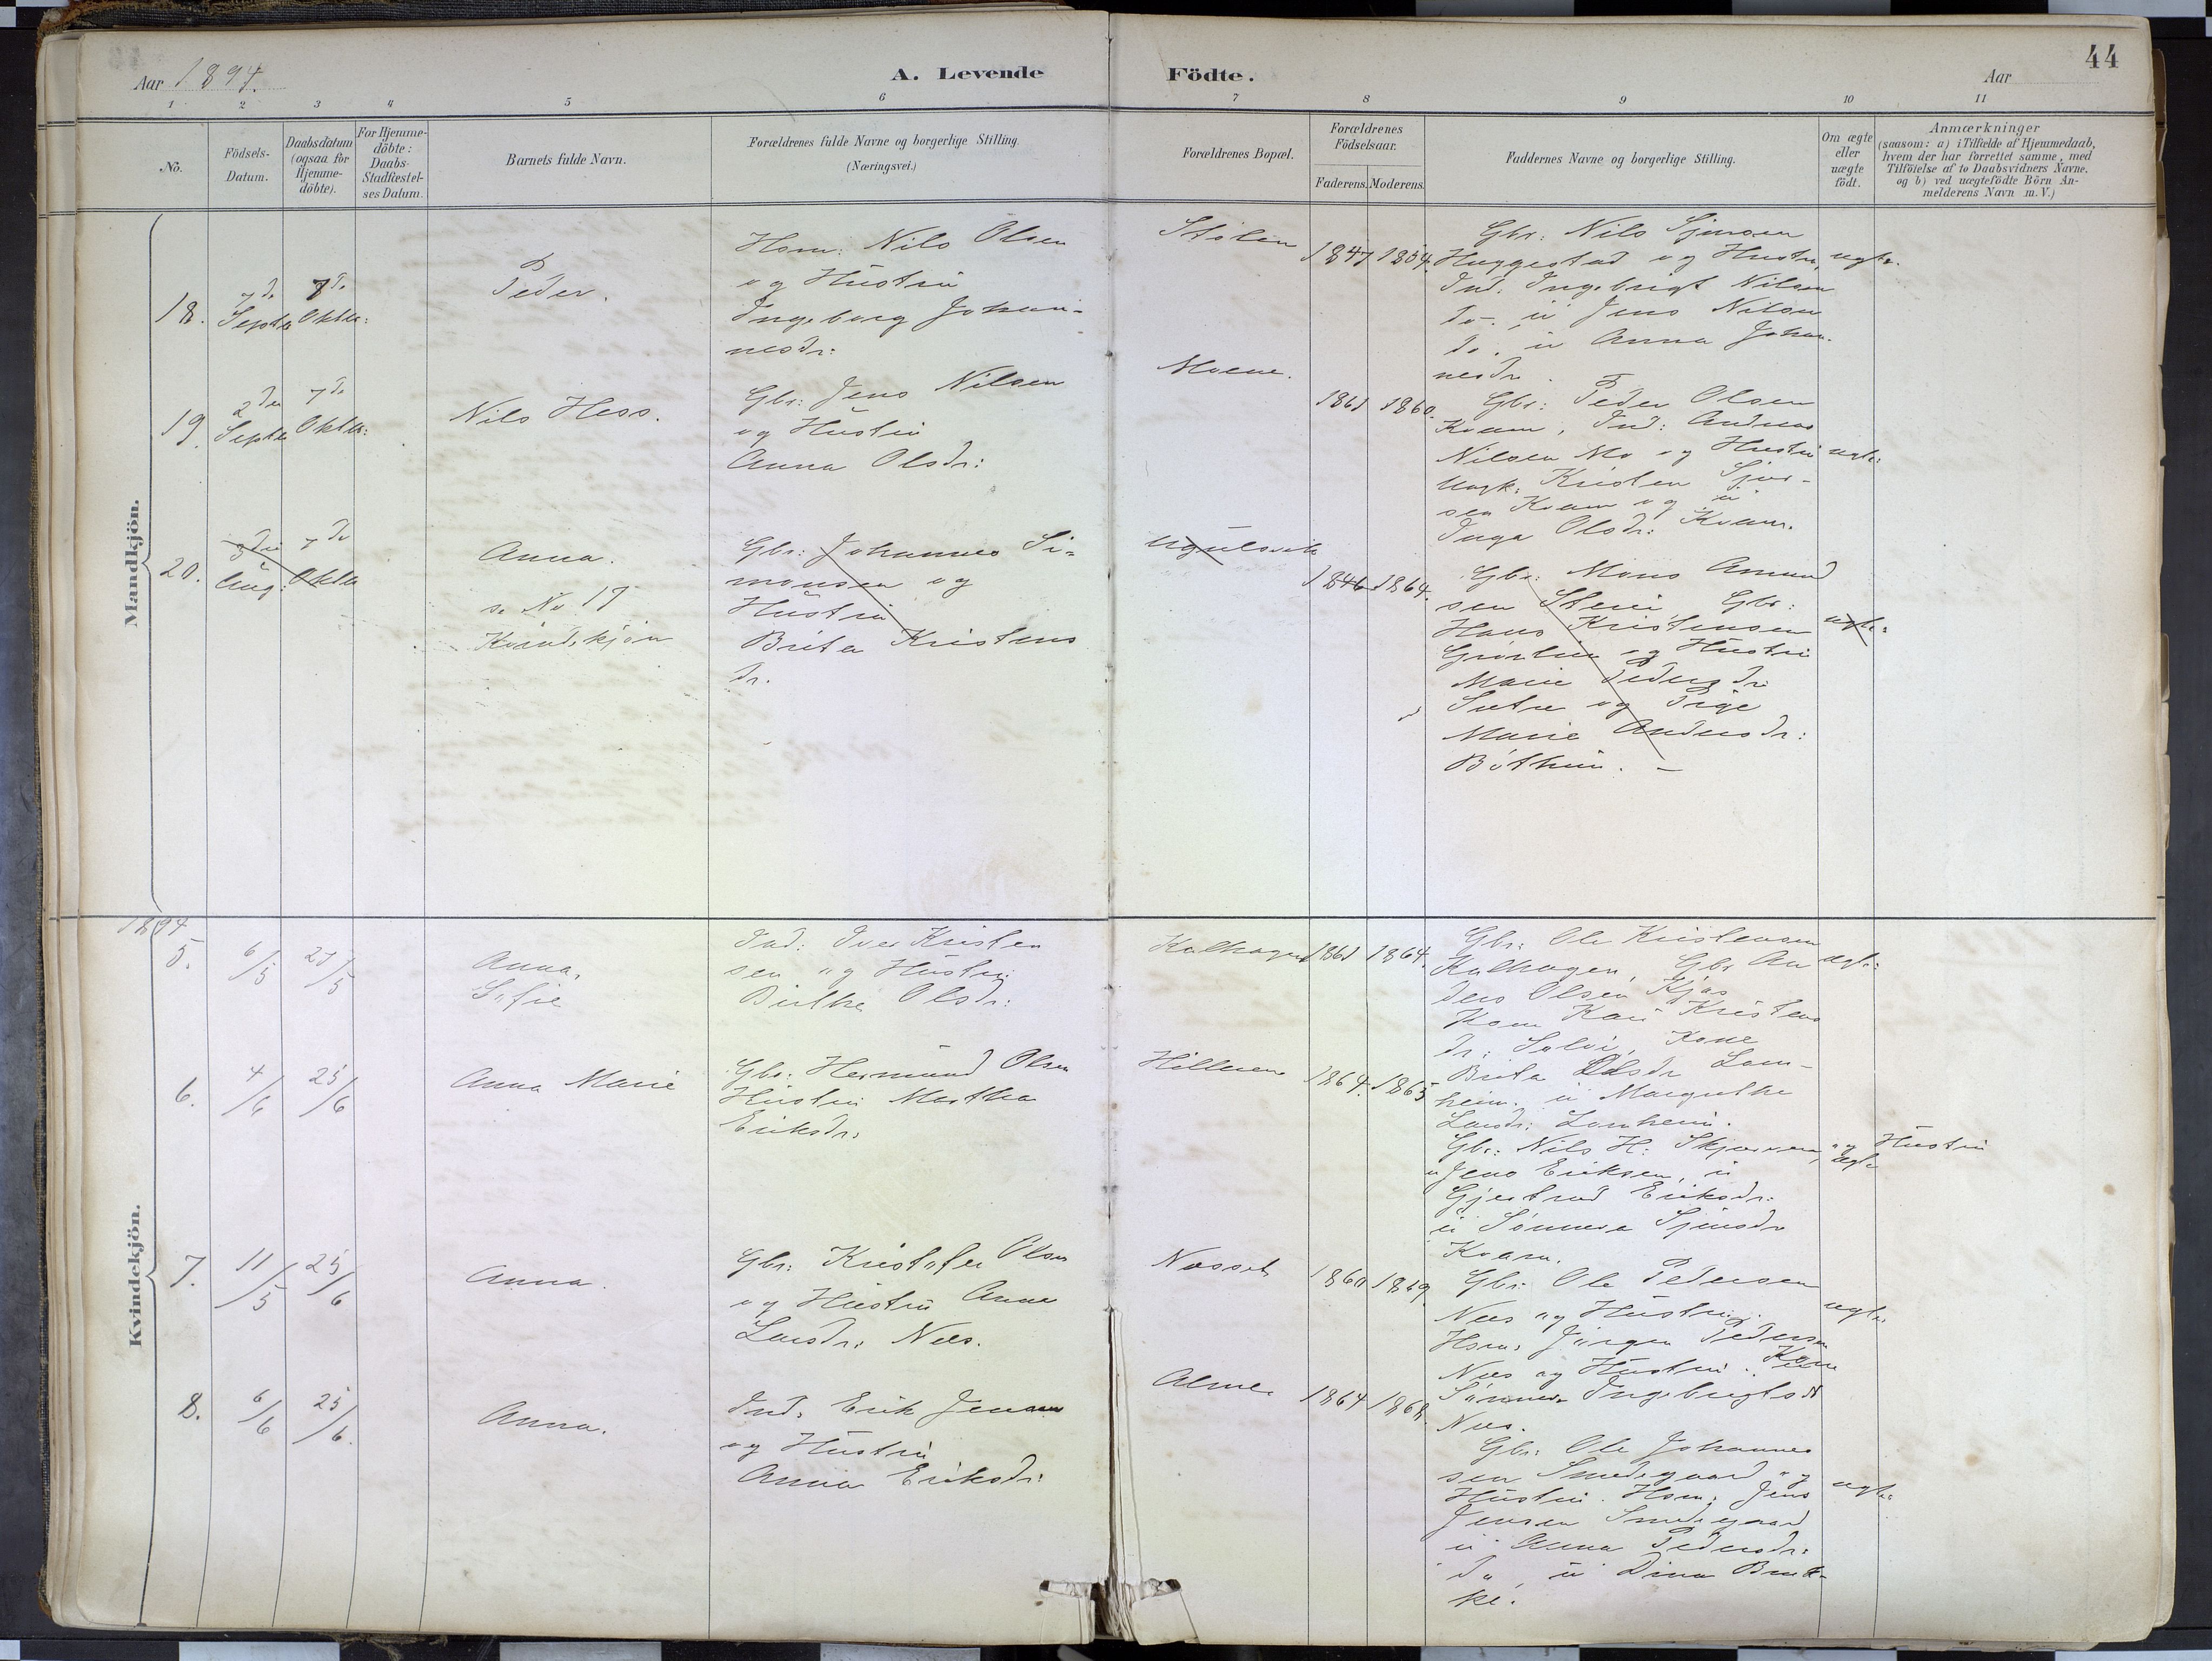 44
Aar 1894.
A. Levende
Födte.
Aar
1 2 3 4 5 6 7 8 9 10 11
No.
Födsels-
Datum.
Daabsdatum
(ogsaa for
Hjemme-
döbte).
For Hjemme-
döbte:
Daabs-
Stadfæstel-
ses Datum.
Barnets fulde Navn.
Forældrenes fulde Navne og borgerlige Stilling
(Næringsvei.)
Forældrenes Bopæl.
Forældrenes
Födselsaar.
Faderens. Moderens.
Faddernes Navne og borgerlige Stilling.
Om ægte
eller
uægte
födt.
Anmærkninger
(saasom: a) i Tilfælde af Hjemmedaab,
hvem der har forrettet samme, med
Tilföielse af to Daabsvidners Navne.
og b) ved uægtefödte Börn An-
melderens Navn m. V.)
Mandkjön.
18.
7de
Septbr
7de
Oktbr:
Peder.
Hsm: Nils Olsen
og Hustru
Ingeborg Johan-
nesdr:
Stölen
1847 1854.
Gbr: Nils Sjursen
Haggestad og Hustru,
Ind: Ingebrigt Nilsen
do. u Jens Nilsen
do. u Anna Johan-
nesdr.
ægte.
19.
2den
Septbr
7de
Oktbr:
Nils Hess.
Gbr: Jens Nilsen
og Hustru
Anna Olsdr:
Moene.
1861 1860.
Gbr: Peder Olsen
Kvam, Ind: Andreas
Nilsen Mo og Hustru
Ungk: Kristen Sjur-
sen Kvam og u
Inga Olsdr: Kvam.
ægte:
20.
3die
Aug:
7de
Oktbr
Anna.
se No 17
Kvindekjön
Gbr: Johannes Si-
monsen og
Hustru
Brita Kristens
dr.
1846 1864.
Gbr: Mons Amund
sen Steiri, Gbr:
Hans Kristensen
og Hustru
Marie Pedersdr
Sætre og Pige
Marie Andersdr:
Böthun. –
ægte:
Kvindekjön.
1894
5.
6/5
27/5
Anna.
Sofie
Ind: Iver Kristen
sen og Hustru
Birthe Olsdr:
Kalhagen
1861 1864.
Gbr: Ole Kristensen
Kalhagen, Gbr An
ders Olsen Kjös
Kone Kari Kristens
dr: Solvi, Kone
Brita Olsdr Lom-
heim. u Margrethe
Larsdr: Lomheim.
ægte:
6.
4/6
25/6
Anna Marie
Gbr: Hermund Olsen
Hustru Martha
Eriksdr:
Hillmen
1864. 1865
Gbr: Nils H: Skjerven, og Hustru
u Jens Eriksen, u
Gjertrud Eriksdr:
u Sönneva Sjursdr
Kvam.
ægte
7.
11/5
25/6
Anna.
Gbr: Kristofer Olsen
og Hustru Anna
Larsdr: Nees.
Nesset
1860 1869.
Gbr: Ole Pedersen
Nees og Hustru;
Hsm: Jörgen Pedersen
Nees og Hustru. Kone
Sönneva Ingebrigtsdr
Nees.
ægte.
8.
6/6
25/6.
Anna.
Ind: Erik Jensen
og Hustru
Anna Eriksdr:
Alme
1864 1868.
Gbr: Ole Johannes
sen Smedegaard og
Hustru. Hsm: Jens
Jensen Smedegaard
u Anna Pedersdr:
do, u Dina Bruk-
ke.
ægte: